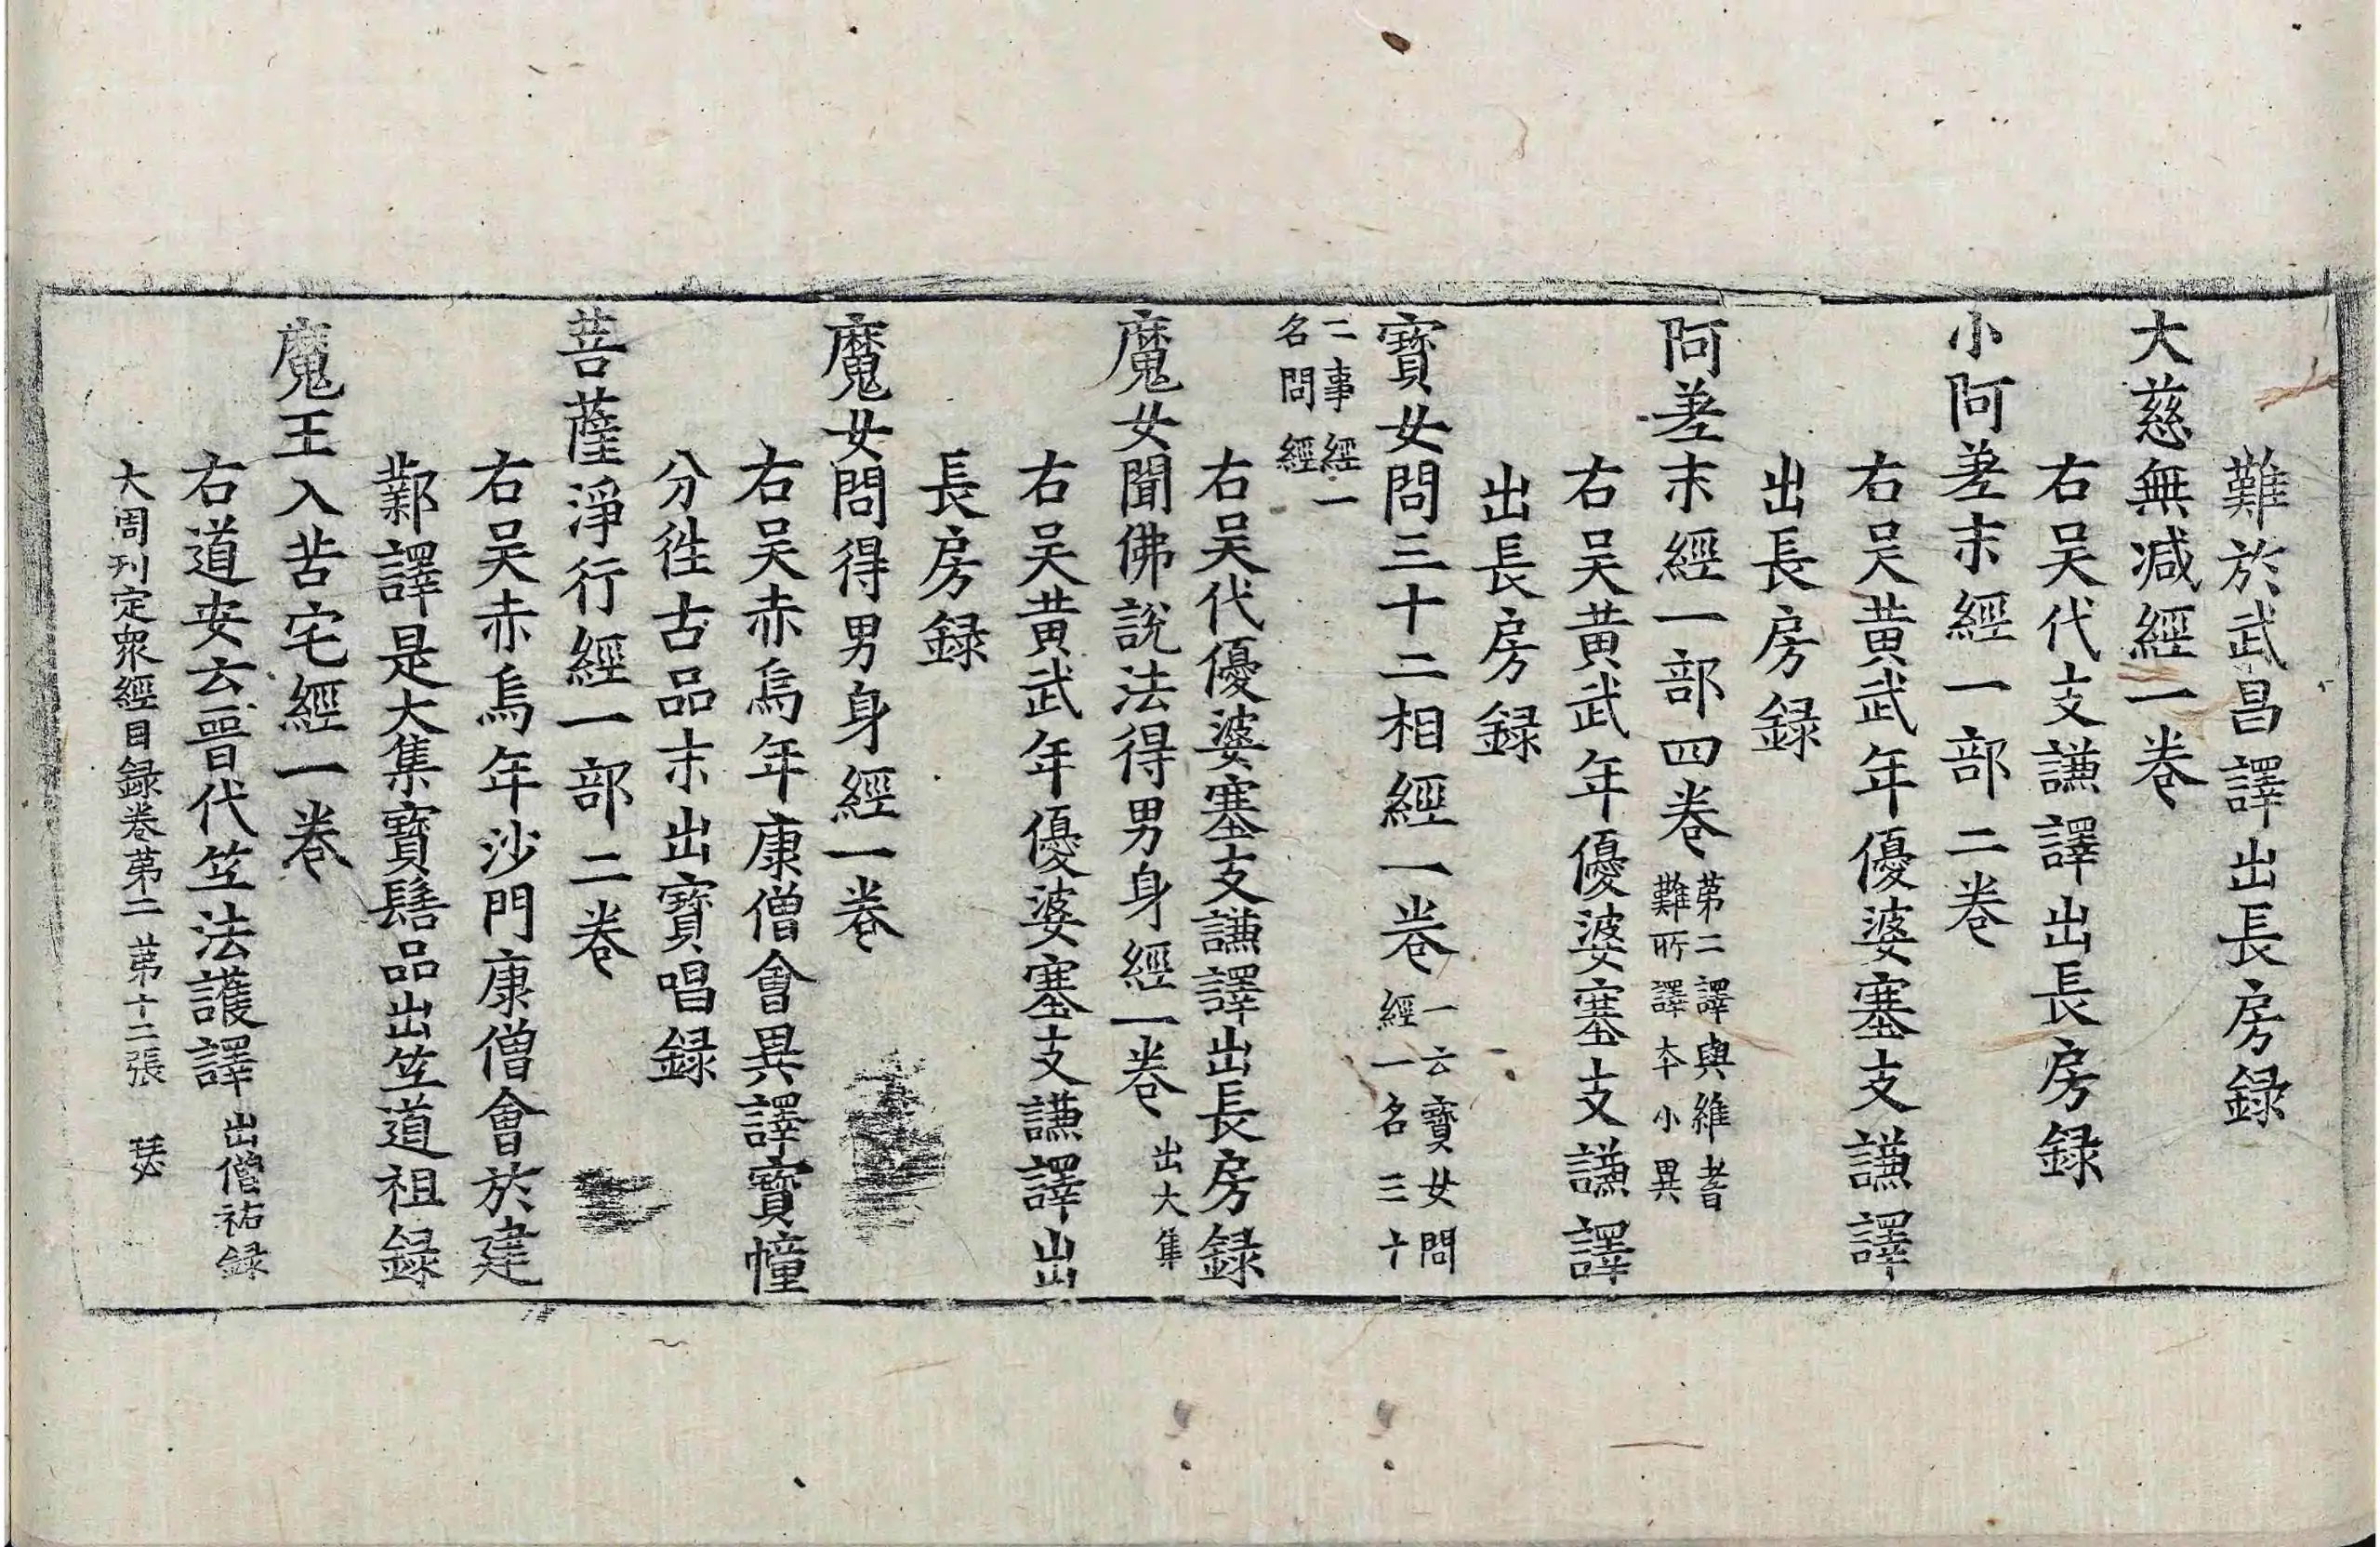 難於武昌譯出長房録
大慈無減經一卷
右吴代支謙譯出長房録
小阿差末經一部二卷
右吴黄武年優婆塞支謙譯
出長房録
阿差末經一部四卷
苐二譯與維耆
難所譯本小異
右吴黄武年優婆塞支謙譯
出長房録
寳女問三十二相經一卷
一云寳女問
經一名三十
二事經一
名問經
右吴代優婆塞支謙譯出長房録
魔女聞佛說法得男身經一卷
出大集
右吴黄武年優婆塞支謙譯出
長房録
魔女問得男身經一卷
右吴赤烏年康僧會異譯寳幢
分徃古品末出寳唱録
菩薩淨行經一部二卷
右吴赤烏年沙門康僧會於建
鄴譯是大集寳髻品出笁道祖録
魔王入苦宅經一卷
右道安云晋代笁法護譯
出僧祐録
大周刋定衆經目録卷苐二 苐十二張 瑟